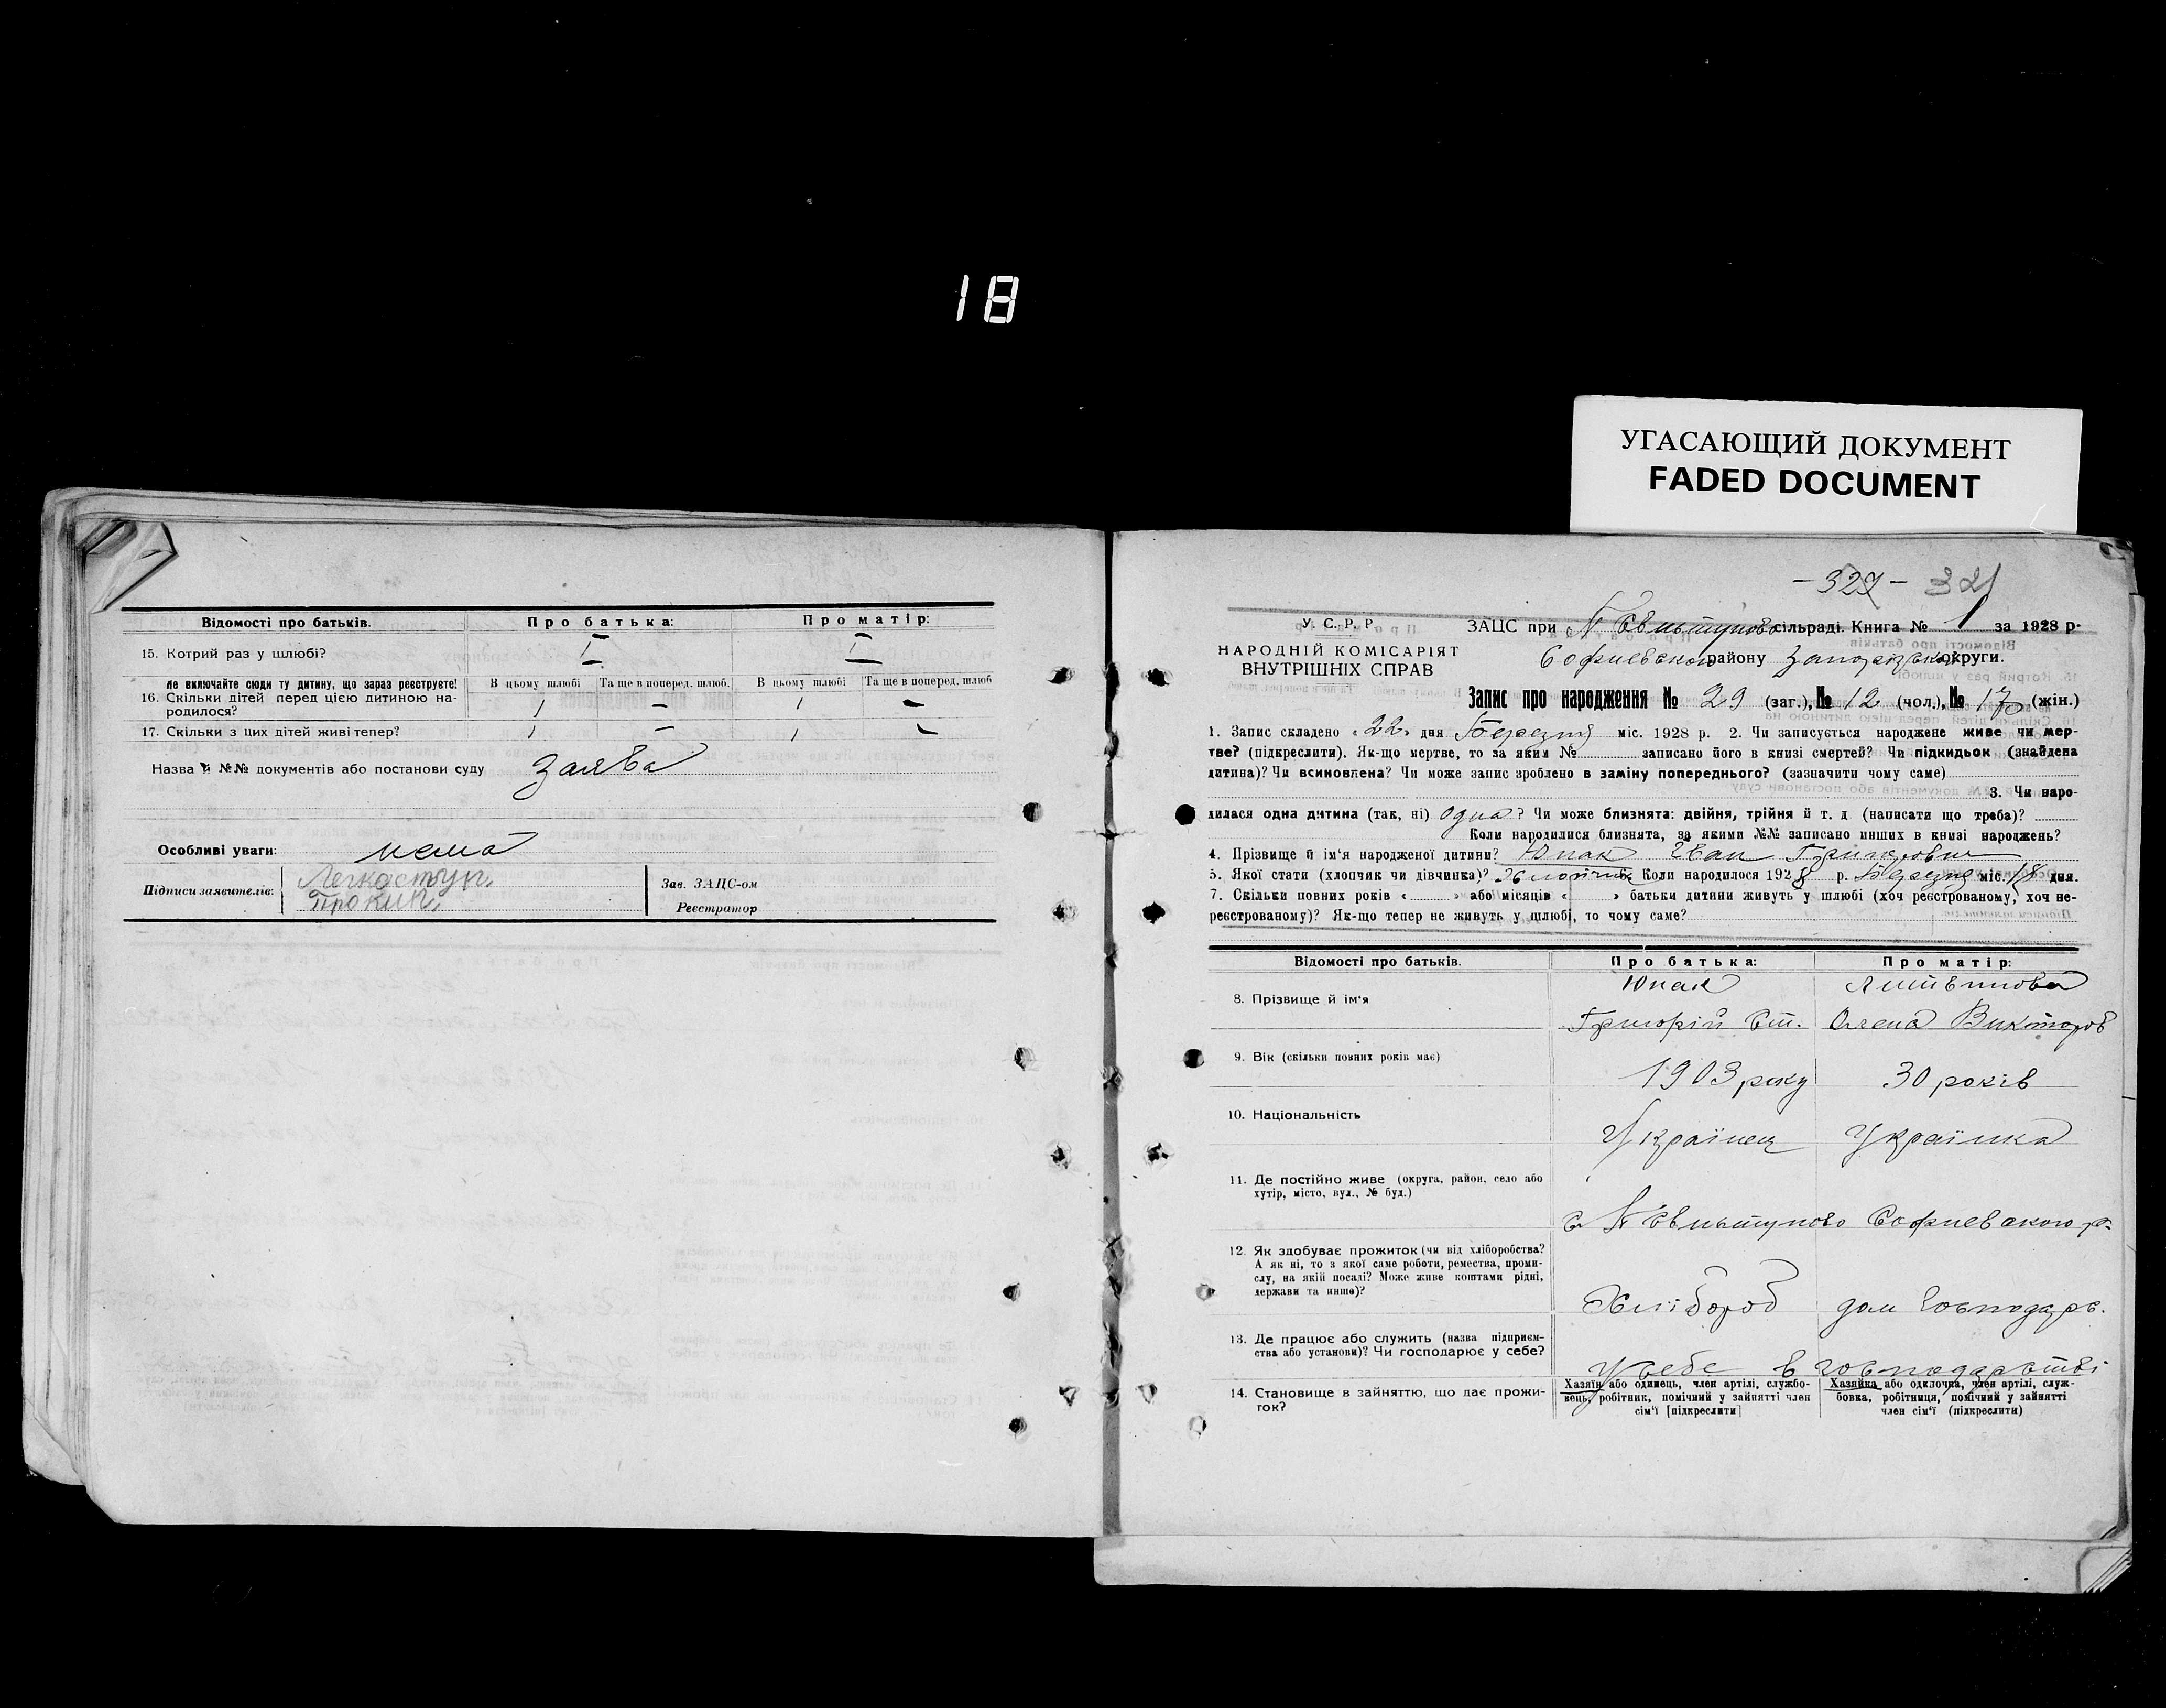 18
УГАСАЮЩИЙ ДОКУМЕНТ
FADED DOCUMENT
Відомості про батьків. Про батька: Про матір:
15. Котрий раз у шлюбі? I I
не включайте сюди ту дитину, що зараз реєструєте! В цьому шлюбі Та ще в поперед. шлюб. В цьому шлюбі Та ще в поперед. шлюб
16. Скільки дітей перед цією дитиною на-
родилося? 1 – 1 –
17. Скільки з цих дітей живі тепер? 1 – 1 –
Назва й №№ документів або постанови суду Заява
Особливі уваги: нема
Підписи заявителів: Легкоступ.
Прокип.
Зав. ЗАЦС-ом
Реєстратор
– 327 – 321
У. С. Р. Р.
НАРОДНІЙ КОМІСАРІЯТ
ВНУТРІШНІХ СПРАВ
ЗАЦС при сільраді. Книга № 1 за 1928 р-
Софиевского району Запорізьк. округи.
Запис про народження № 29 (заг.), № 12 (чол.), № 17 (жін.)
1. Запис складено «22» дня Березня міс. 1928 р. 2. Чи записується народжене живе чи мер-
тве? (підкреслити). Як-що мертве, то за яким № записано його в книзі смертей? Чи підкидьок (знайдена
дитина)? Чи всиновлена? Чи може запис зроблено в заміну попереднього? (зазначити чому саме)
3. Чи наро-
дилася одна дитина (так, ні) одна? Чи може близнята: двійня, трійня й т. д. (написати що треба)?
Коли народилися близнята, за якими №№ записано инших в книзі народжень?
4. Прізвище й ім'я народженої дитини? Юпак Іван Григорович
5. Якої стати (хлопчик чи дівчинка)? Хлопчик Коли народилося 1928 р. Березня міс. 18 дня.
7. Скільки повних років « » або місяців « » батьки дитини живуть у шлюбі (хоч реєстрованому, хоч не-
реєстрованому)? Як-що тепер не живуть у шлюбі, то чому саме?
Відомості про батьків. Про батька: Про матір:
8. Прізвище й ім'я Юпак Литвинова
Григорій Ст. Олена Викторов
9. Вік (скільки повних років має) 1903 року 30 років
10. Національність Українец Українка
11. Де постійно живе (округа, район, село або
хутір, місто, вул., № буд.)
Софиевского р.
12. Як здобуває прожиток (чи від хліборобства?
А як ні, то з якої саме роботи, ремества, проми-
слу, на якій посаді? Може живе коштами рідні,
держави та инше)? Хлібороб дом господарь.
13. Де працює або служить (назва підприєм-
ства або установи)? Чи господарює у себе? У себе в господарстві
14. Становище в зайняттю, що дає прожи-
ток?
Хазяїн або одинець, член артілі, службо-
вець, робітник, помічний у зайнятті член
сім'ї [підкреслити]
Хазяйка або одиночка, член артілі, служ-
бовка, робітниця, помічний у зайнятті
член сім'ї (підкреслити)